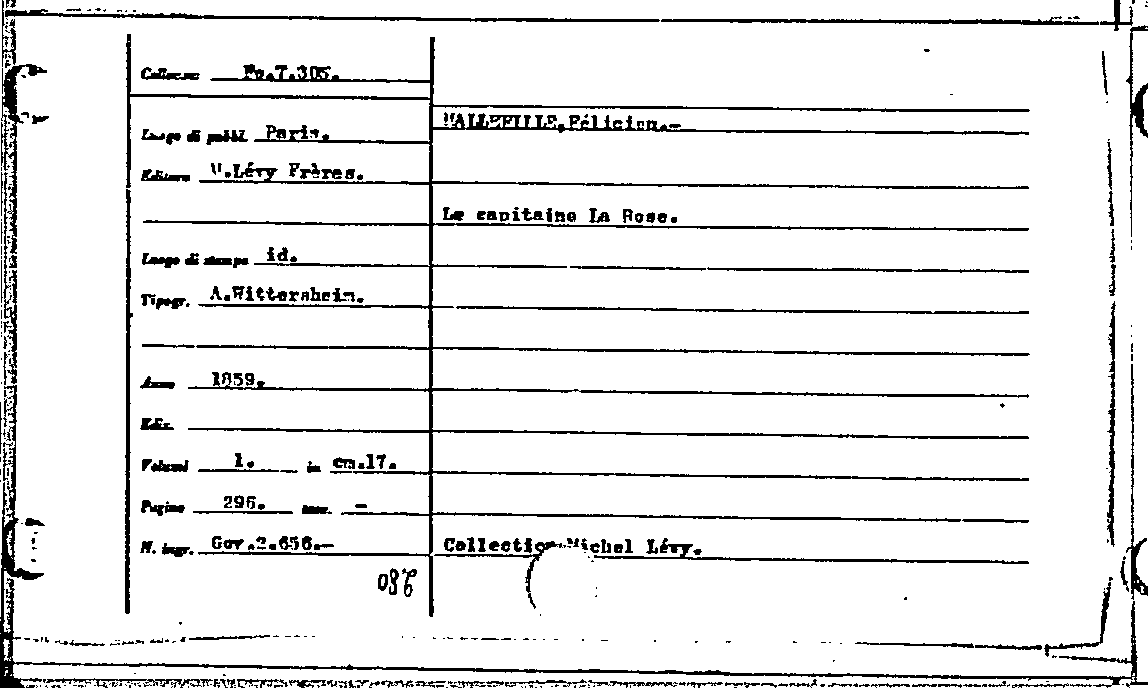 Collocaz. Po.T.305.
Luogo di pubbl. Paris.
Editore M.Lévy Frères.
Luogo di stampa id.
Tipogr. A.Wittersheim.
Anno 1859.
Ediz.
Volumi 1. in cm.17.
Pagine 296. num. -
N. ingr. Gov.2.656.-
MALLEFILLE,Félicien.-
Le capitaine La Rose.
Collection Michel Lévy.